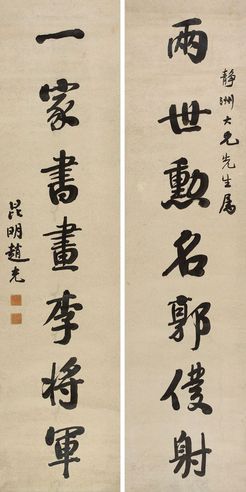 静洲大兄先生属
兩世勳名郭僕射
一家書畫李将軍
昆明趙光